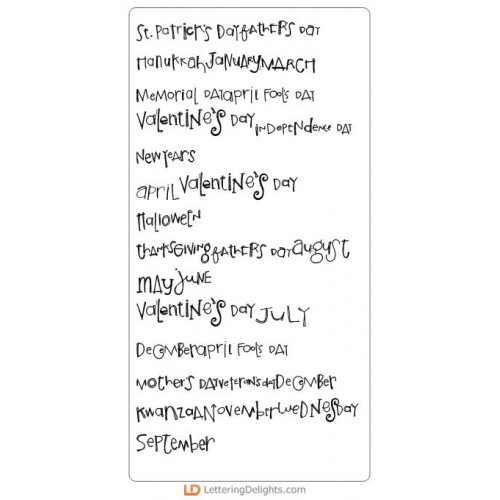 St. Patrick's DayFathers Day
HanukkahJanuaryMARCH
Memorial DayApril Fools Day
Valentine's DayIndependence Day
New Years
AprilValentine's Day
Halloween
ThanksgivingFathers DayAugust
MAYJUNE
Valentine's DayJULY
DecemberApril Fools Day
Mother's DayVeterans dayDecember
KwanzaaNovemberWednesday
September
LD LetteringDelights.com